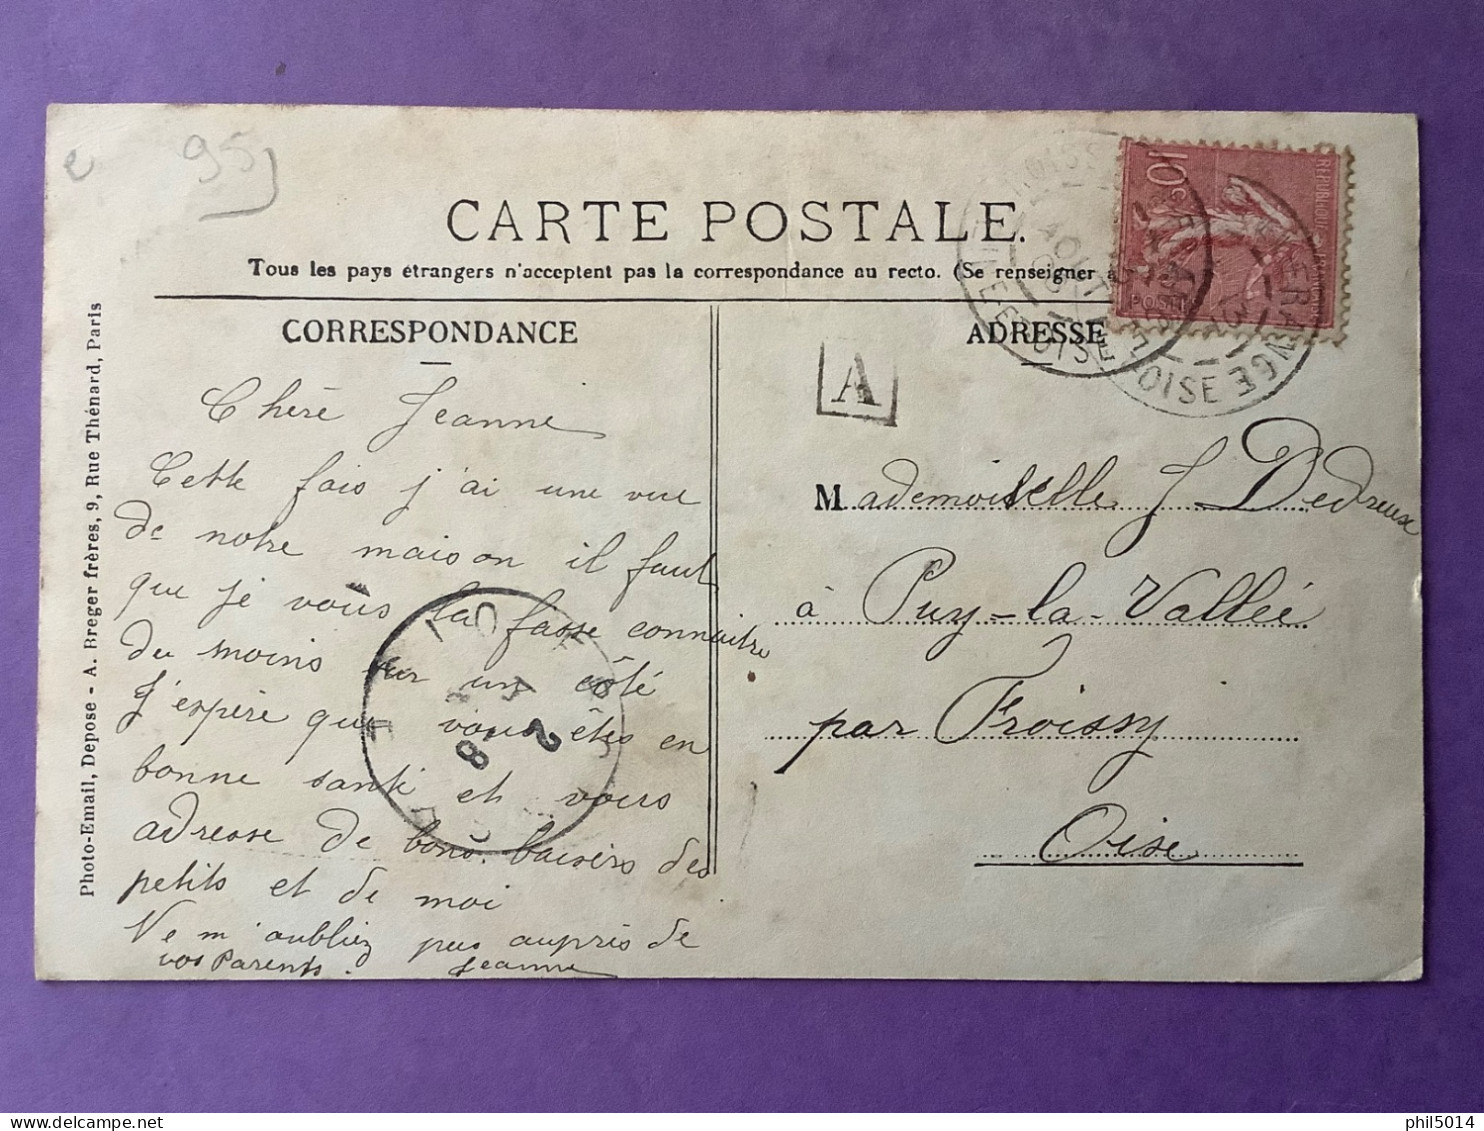 e 95
CARTE POSTALE.
Tous les pays étrangers n'acceptent pas la correspondance au recto. (Se renseigner à
CORRESPONDANCE
ADRESSE
A
10c
REPUBLIQUE FRANÇAISE
POSTES
AOUT
SEINE ET OISE
OISE
Chère Jeanne
Cette fois j'ai une vue
de notre maison il faut
que je vous la fasse connaître
du moins sur un côté
J'espère que vous êtes en
bonne santé et vous
adresse de bons baisers des
petits et de moi
Ne m'oubliez pas auprès de
vos Parents. Jeanne
Mademoiselle J Dedreux
à Puy-la-Vallée
par Froissy
Oise
Photo-Email, Depose - A. Breger frères, 9, Rue Thénard, Paris
phil5014